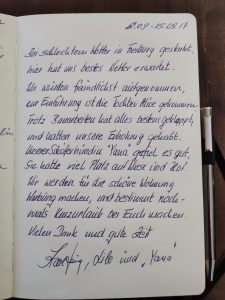 8.09-15.09.17
Bei schlechtem Wetter in Freiburg gestartet,
hier hat uns bestes Wetter erwartet.
Wir wurden freundlichst aufgenommen,
zur Einführung ist die Echten Mive gekommen.
Trotz Bauarbeiten hat alles bestens geklappt,
und hatten unsere Erholung gehabt.
Unserer Schäferhündin "Yana" gefiel es gut,
Sie hatte viel Platz auf Wiese und Hof.
Wir werden für die schöne Wohnung
Werbung machen, und bestimmt noch-
mals Kurzurlaub bei Euch machen.
Vielen Dank und gute Zeit
und "Yana"